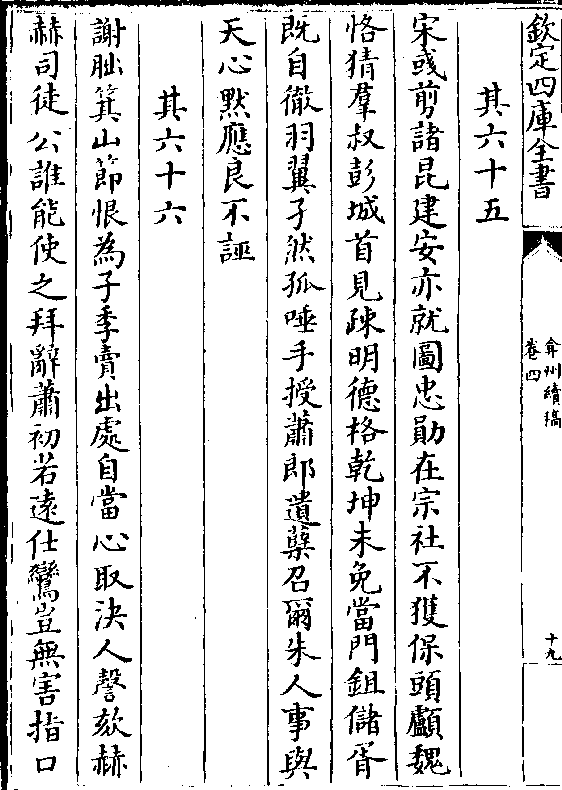 欽定四庫全書
弇州續稿
卷四
十九
其六十五
宋彧剪諸昆建安亦就圖忠勛在宗社不獲保頭顱魏
恪猜羣叔彭城首見疎明德格乾坤未免當門鉏儲胥
既自徹羽翼孑然孤唾手授蕭郎遺蘖召爾朱人事與
天心默應良不誣
其六十六
謝朏箕山節恨為子季賣出處自當心取決人謦欬赫
赫司徒公誰能使之拜辭蕭初若遠仕鸞豈無害指口